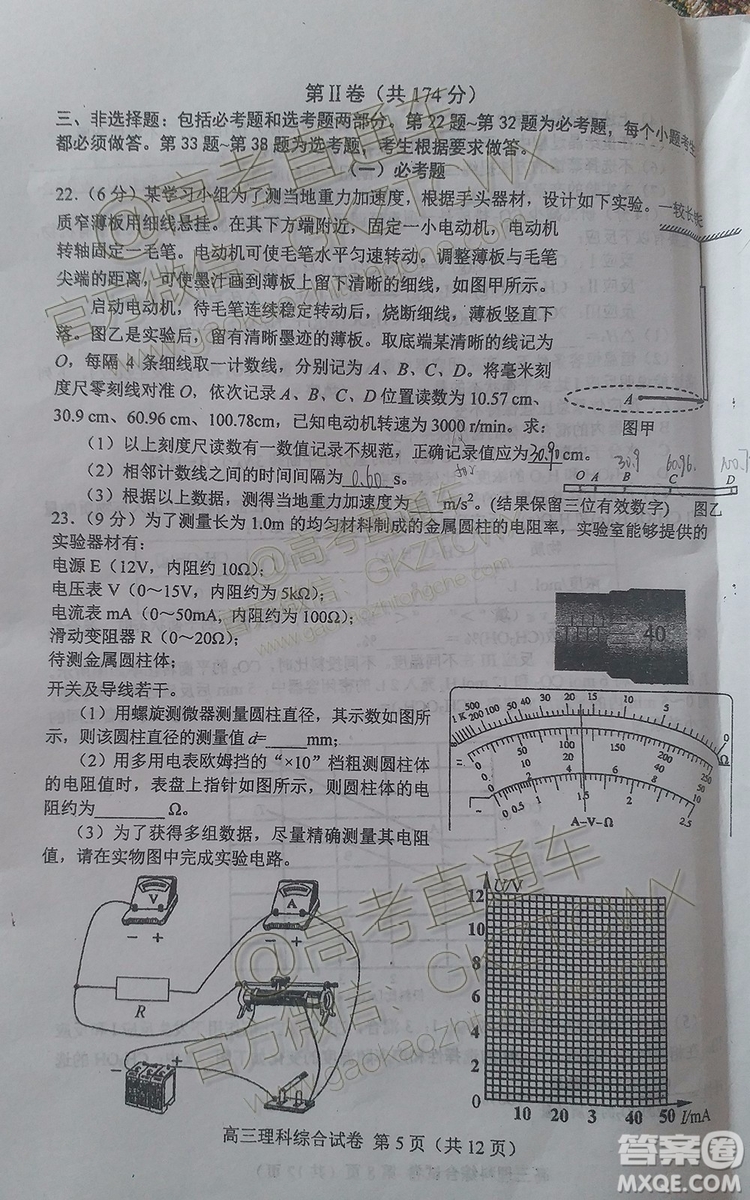 第Ⅱ卷（共174分）
三、非选择题：包括必考题和选考题两部分。第22题~第32题为必考题，每个小题考生
都必须做答。第33题~第38题为选考题，考生根据要求做答。
（一）必考题
22.（6分）某学习小组为了测当地重力加速度，根据手头器材，设计如下实验。一较长
质窄薄板用细线悬挂。在其下方端附近，固定一小电动机，电动机
转轴固定一毛笔。电动机可使毛笔水平匀速转动。调整薄板与毛笔
尖端的距离，可使墨汁画到薄板上留下清晰的细线，如图甲所示。
启动电动机，待毛笔连续稳定转动后，烧断细线，薄板竖直下
落。图乙是实验后，留有清晰墨迹的薄板。取底端某清晰的线记为
O，每隔 4 条细线取一计数线，分别记为 A、B、C、D。将毫米刻
度尺零刻线对准 O，依次记录 A、B、C、D 位置读数为 10.57 cm、
30.9 cm、60.96 cm、100.78cm，已知电动机转速为 3000 r/min。求：
A
图甲
（1）以上刻度尺读数有一数值记录不规范，正确记录值应为30.90cm.
（2）相邻计数线之间的时间间隔为0.60s。
30.9 60.96.
O A B C D
（3）根据以上数据，测得当地重力加速度为____m/s².（结果保留三位有效数字） 图乙
23.（9分）为了测量长为 1.0m 的均匀材料制成的金属圆柱的电阻率，实验室能够提供的
实验器材有：
电源 E（12V，内阻约 10Ω）；
电压表 V（0～15V，内阻约 5kΩ）；
电流表 mA（0～50mA, 内阻约为 100Ω）；
滑动变阻器 R（0～20Ω）；
待测金属圆柱体；
开关及导线若干。
40
（1）用螺旋测微器测量圆柱直径，其示数如图所
示，则该圆柱直径的测量值 d=_____mm；
（2）用多用电表欧姆挡的“×10”档粗测圆柱体
的电阻值时，表盘上指针如图所示，则圆柱体的电
阻约为________ Ω。
（3）为了获得多组数据，尽量精确测量其电阻
值，请在实物图中完成实验电路。
1K 500 200 100 50 40 30 20 15 10 5 0 Ω
0 50 100 150 200 250
0 10 20 30 40 50
0 2 4 6 8 10
~ 0 0.5 1 1.5 2 2.5
A-V-Ω
V
− +
A
− +
R
− +
U/V
12
10
8
6
4
2
0
10 20 3 40 50 I/mA
高三理科综合试卷 第 5 页（共 12 页）
@高考直通车
官方微信：GKZTCWX
www.gaokaozhitongche.com
@高考直通车
官方微信：GKZTCWX
www.gaokaozhitongche.com
@高考直通车
官方微信：GKZTCWX
www.gaokaozhitongche.com
答案圈
MXQE.COM